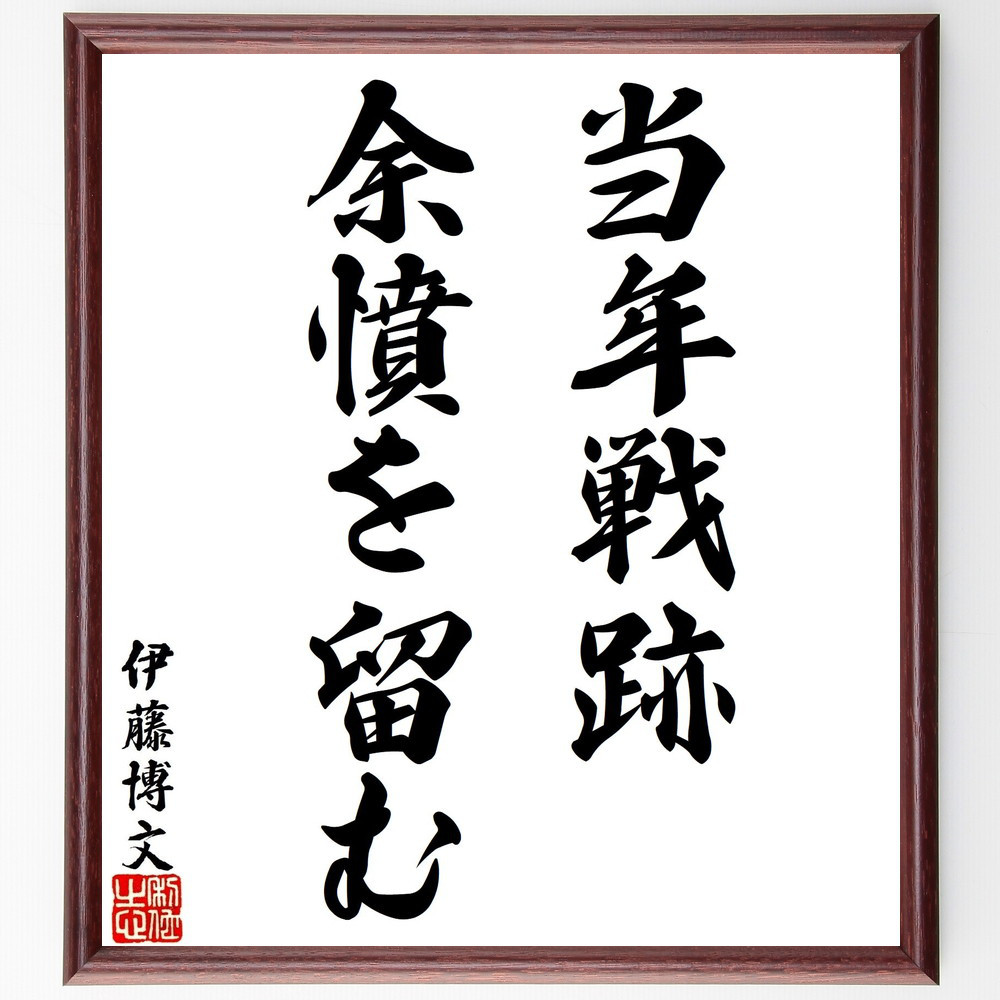 当年戦跡
余憤を留む
伊藤博文